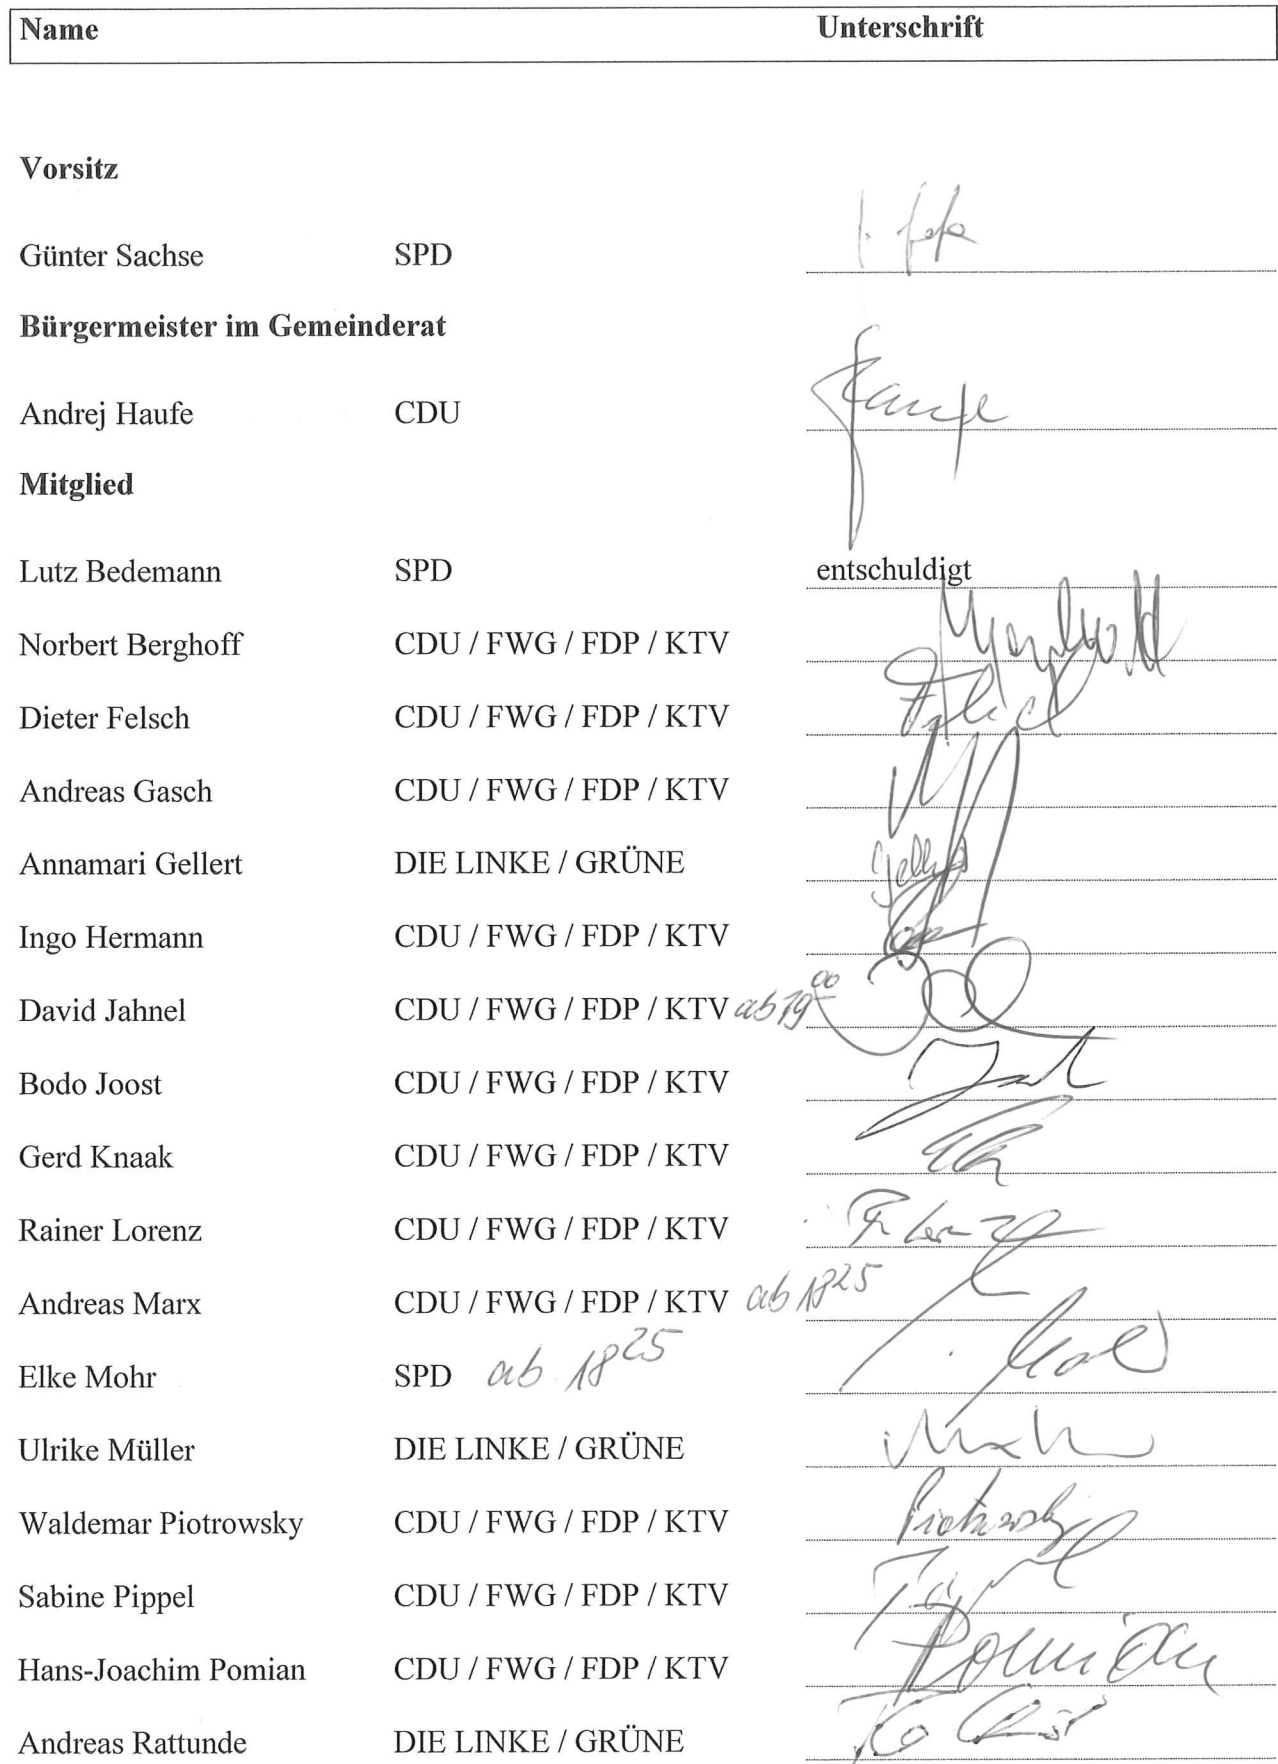 Name Unterschrift
Vorsitz
Günter Sachse SPD
Bürgermeister im Gemeinderat
Andrej Haufe CDU Haufe
Mitglied
Lutz Bedemann SPD entschuldigt
Norbert Berghoff CDU / FWG / FDP / KTV
Dieter Felsch CDU / FWG / FDP / KTV
Andreas Gasch CDU / FWG / FDP / KTV
Annamari Gellert DIE LINKE / GRÜNE Gellert
Ingo Hermann CDU / FWG / FDP / KTV
David Jahnel CDU / FWG / FDP / KTV ab 19 00
Bodo Joost CDU / FWG / FDP / KTV
Gerd Knaak CDU / FWG / FDP / KTV
Rainer Lorenz CDU / FWG / FDP / KTV
Andreas Marx CDU / FWG / FDP / KTV ab 18 25
Elke Mohr SPD ab 18 25
Ulrike Müller DIE LINKE / GRÜNE
Waldemar Piotrowsky CDU / FWG / FDP / KTV Piotrowsky
Sabine Pippel CDU / FWG / FDP / KTV
Hans-Joachim Pomian CDU / FWG / FDP / KTV Pomian
Andreas Rattunde DIE LINKE / GRÜNE